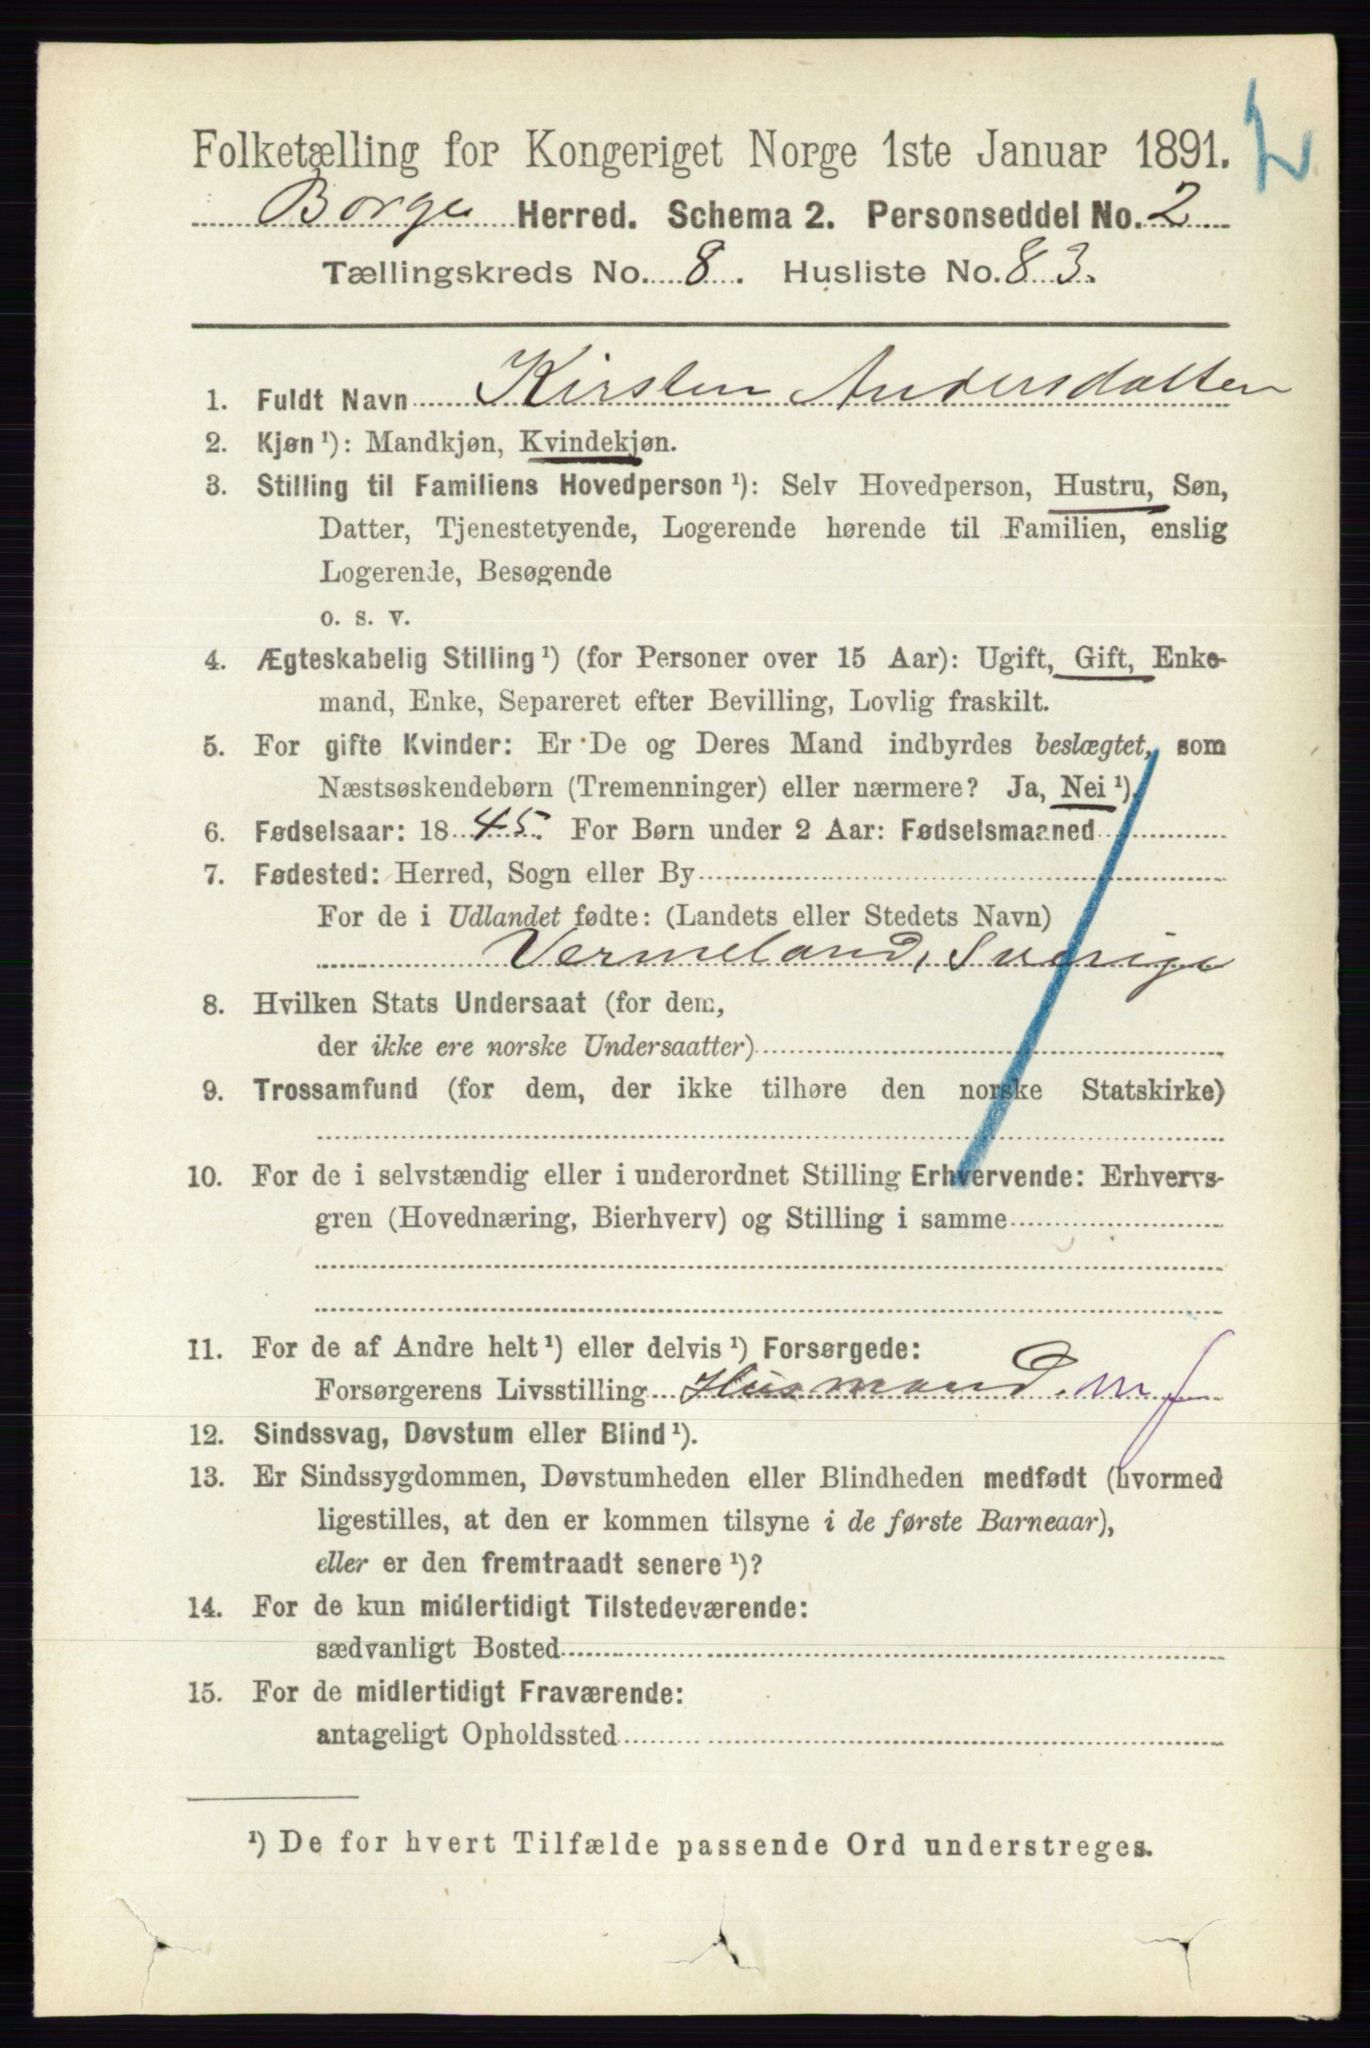 Folketælling for Kongeriget Norge 1ste Januar 1891.
Borge Herred. Schema 2. Personseddel No. 2
Tællingskreds No. 8. Husliste No. 83.
1. Fuldt Navn Kirsten Andersdatter
2. Kjøn ¹): Mandkjøn, Kvindekjøn.
3. Stilling til Familiens Hovedperson ¹): Selv Hovedperson, Hustru, Søn,
Datter, Tjenestetyende, Logerende hørende til Familien, enslig
Logerende, Besøgende
o. s. v.
4. Ægteskabelig Stilling ¹) (for Personer over 15 Aar): Ugift, Gift, Enke-
mand, Enke, Separeret efter Bevilling, Lovlig fraskilt.
5. For gifte Kvinder: Er De og Deres Mand indbyrdes beslægtet, som
Næstsøskendebørn (Tremenninger) eller nærmere? Ja, Nei ¹).
6. Fødselsaar: 1845. For Børn under 2 Aar: Fødselsmaaned
7. Fødested: Herred, Sogn eller By
For de i Udlandet fødte: (Landets eller Stedets Navn)
Vermeland, Sverige
8. Hvilken Stats Undersaat (for dem,
der ikke ere norske Undersaatter)
9. Trossamfund (for dem, der ikke tilhøre den norske Statskirke)
10. For de i selvstændig eller i underordnet Stilling Erhvervende: Erhvervs-
gren (Hovednæring, Bierhverv) og Stilling i samme
11. For de af Andre helt ¹) eller delvis ¹) Forsørgede:
Forsørgerens Livsstilling Husmand. m f
12. Sindssvag, Døvstum eller Blind ¹).
13. Er Sindssygdommen, Døvstumheden eller Blindheden medfødt (hvormed
ligestilles, at den er kommen tilsyne i de første Barneaar),
eller er den fremtraadt senere ¹)?
14. For de kun midlertidigt Tilstedeværende:
sædvanligt Bosted
15. For de midlertidigt Fraværende:
antageligt Opholdssted
¹) De for hvert Tilfælde passende Ord understreges.